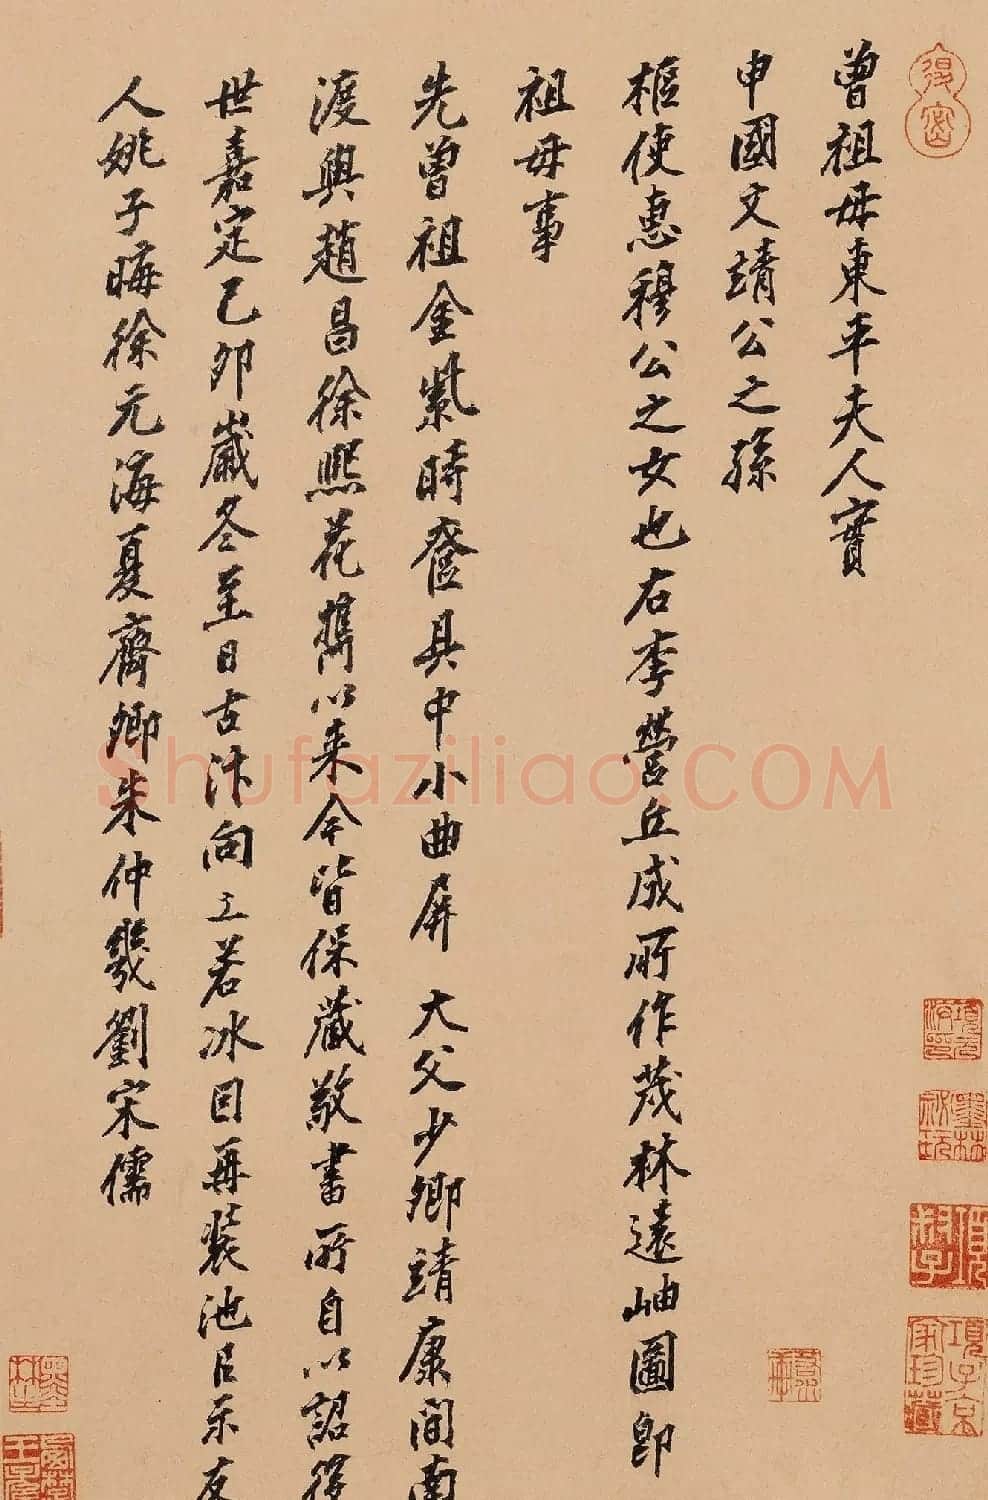 曾祖母東平夫人實
申國文靖公之孫
樞使惠穆公之女也右李營丘成所作茂林遠岫圖即
祖母事
先曾祖金紫時奩具中小曲屏 大父少卿靖康間南
渡與趙昌徐熙花攜以來今皆保藏敬書所自以詔後
世嘉定己卯歲冬至日古汴向士若冰因再裝池以示友
人姚子晦徐元海夏齊卿朱仲幾劉宋儒
項子京家珍藏
Shufaziliao.COM